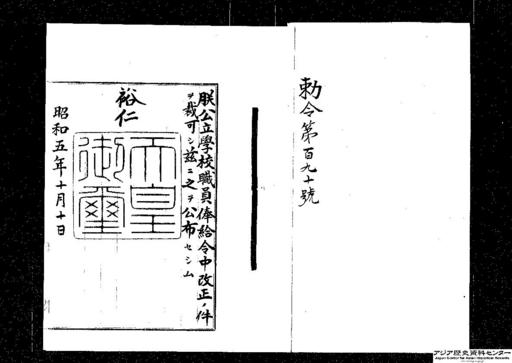 勅令第百九十號
朕公立學校職員俸給令中改正ノ件
ヲ裁可シ茲ニ之ヲ公布セシム
裕仁
天皇
御璽
昭和五年十月十日
アジア歴史資料センター
Japan Center for Asian Historical Records